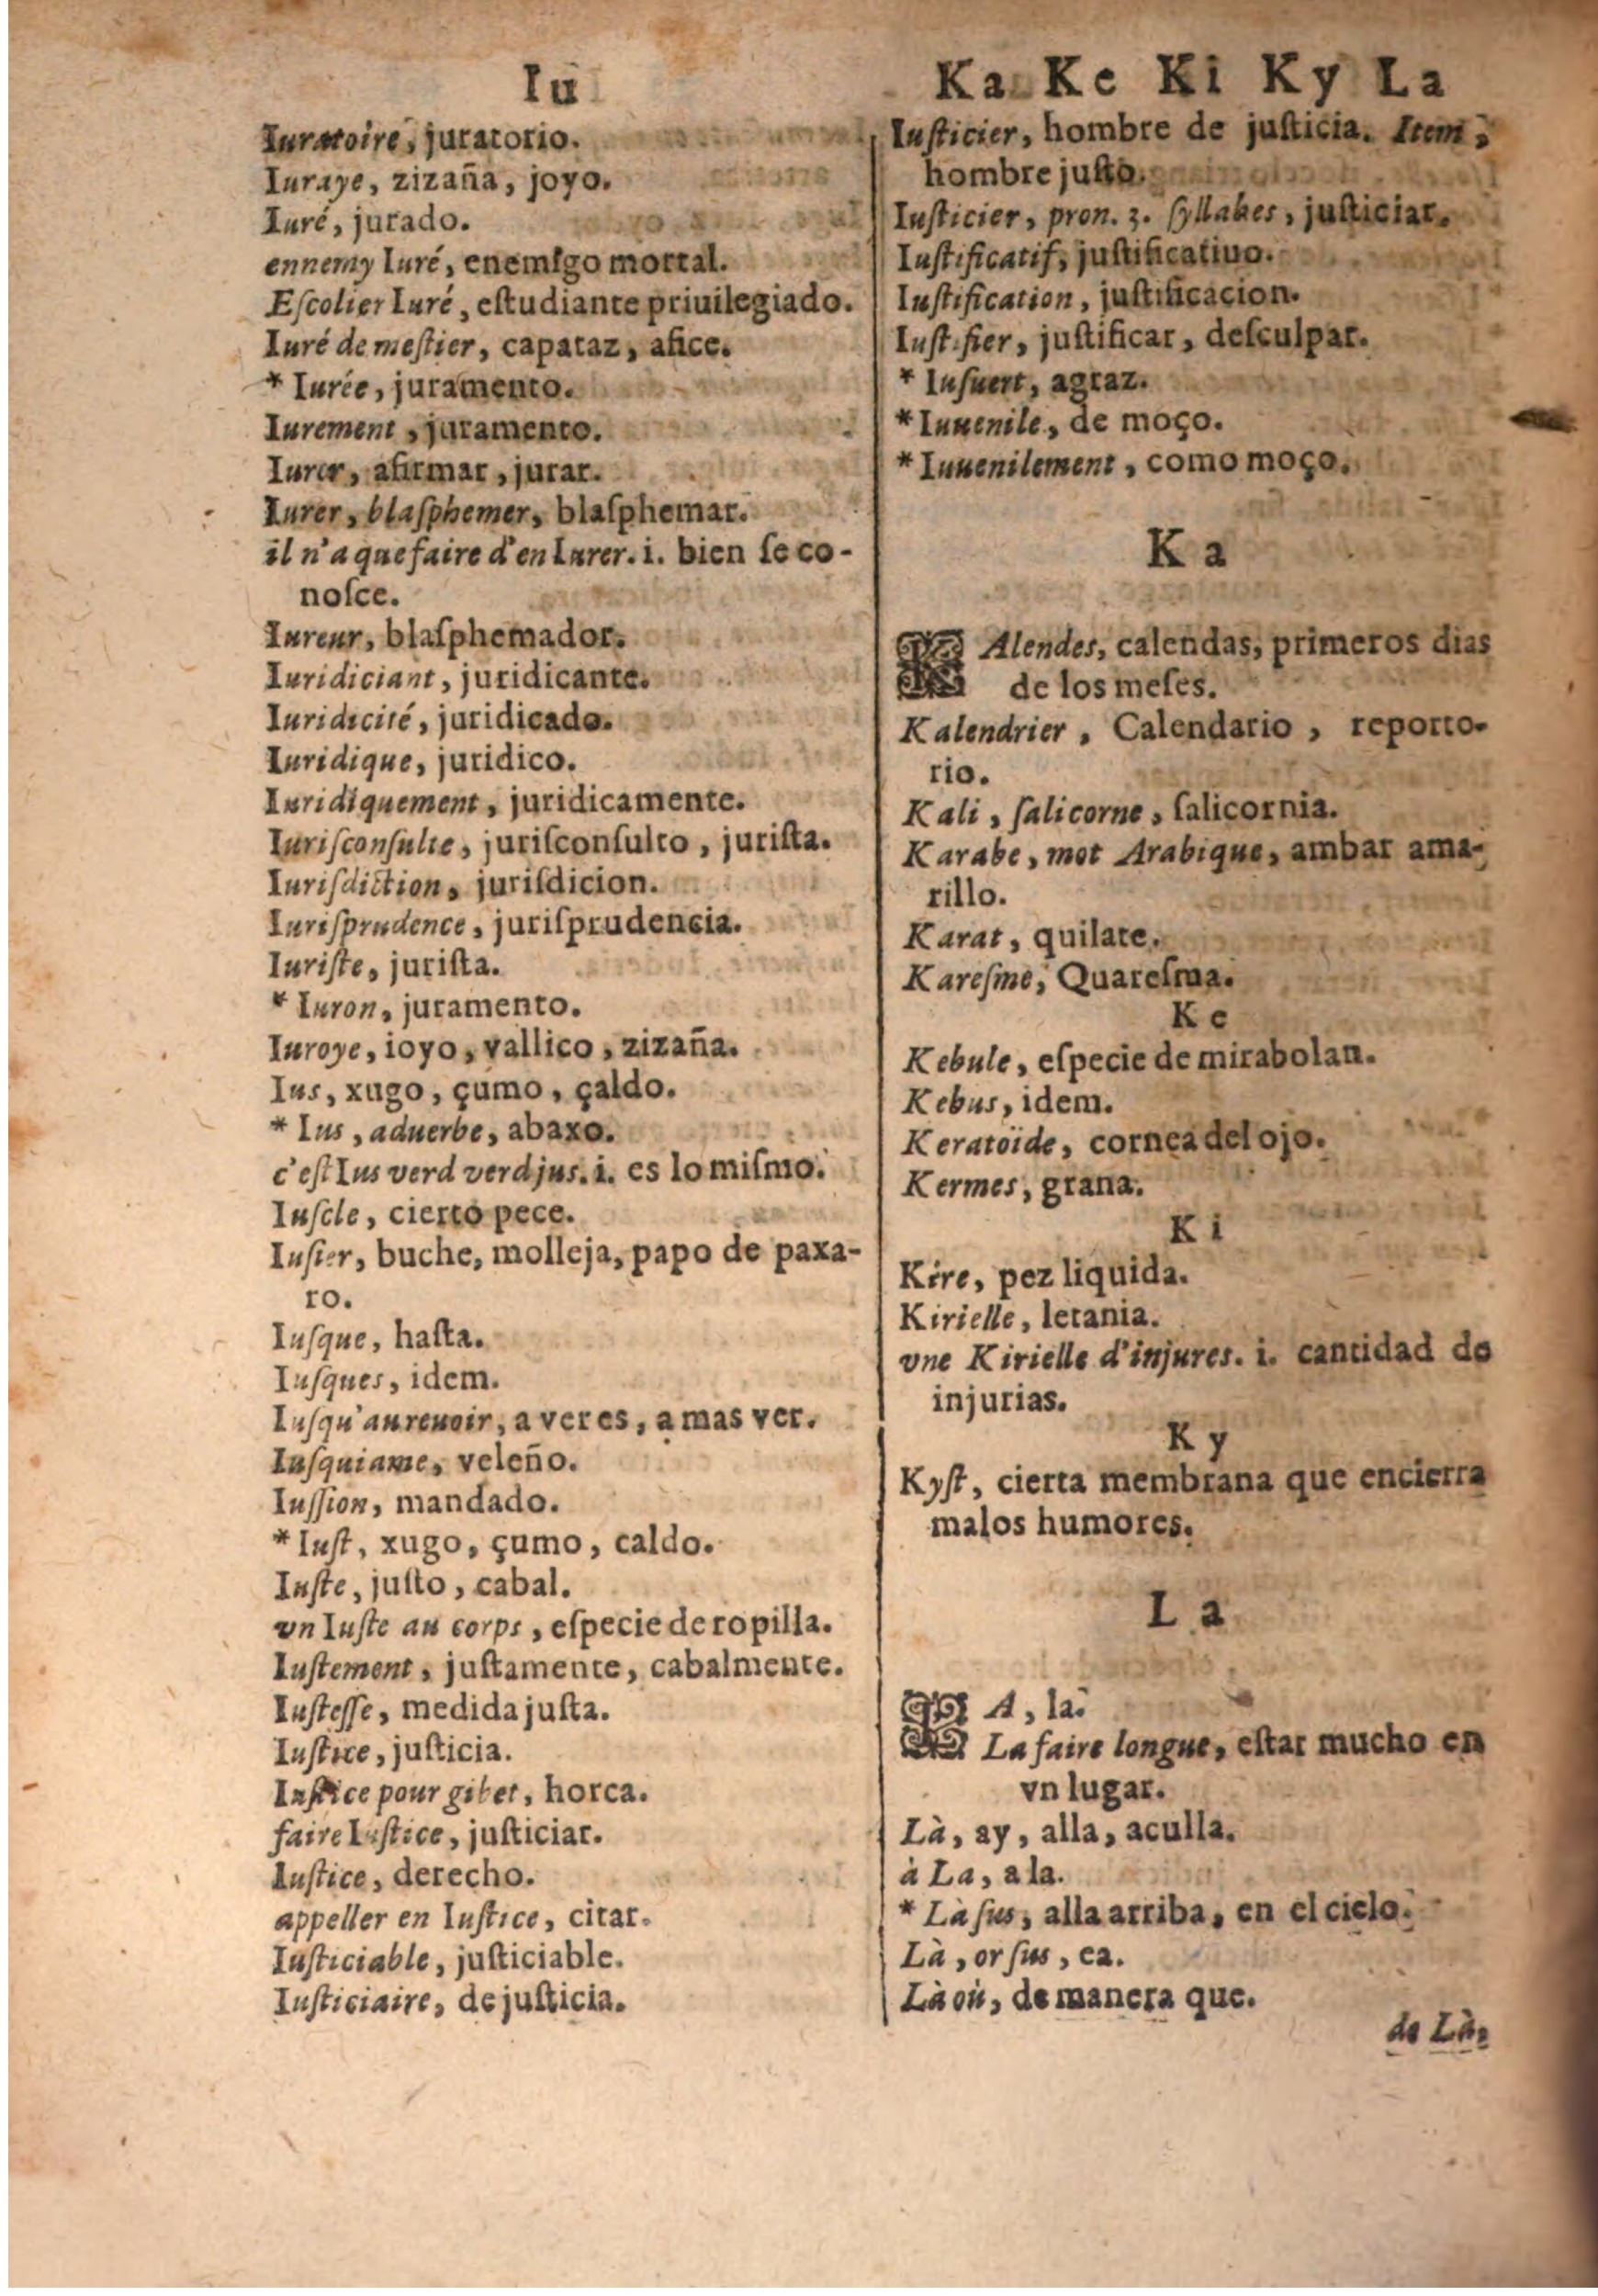 Iu
Iuratoire, juratorio.
Iuraye, zizaña, joyo.
Iuré, jurado.
ennemy Iuré, enemigo mortal.
Eſcolier Iuré, eſtudiante priuilegiado.
Iuré de meſtier, capataz, afice.
* Iurée, juramento.
Iurement, juramento.
Iurer, afirmar, jurar.
Iurer, blaſphemer, blaſphemar.
il n'a que faire d'en Iurer. i. bien ſe co-
noſce.
Iureur, blaſphemador.
Iuridiciant, juridicante.
Iuridicité, juridicado.
Iuridique, juridico.
Iuridiquement, juridicamente.
Iuriſconſulte, juriſconſulto, juriſta.
Iuriſdiction, juriſdicion.
Iuriſprudence, juriſprudencia.
Iuriſte, juriſta.
* Iuron, juramento.
Iuroye, ioyo, vallico, zizaña.
Ius, xugo, çumo, çaldo.
* Ius, aduerbe, abaxo.
c'eſt Ius verd verd jus. i. es lo miſmo.
Iuſcle, cierto pece.
Iuſier, buche, molleja, papo de paxa-
ro.
Iuſque, haſta.
Iuſques, idem.
Iuſqu'au reuoir, a veres, a mas ver.
Iuſquiame, veleño.
Iuſſion, mandado.
* Iuſt, xugo, çumo, caldo.
Iuſte, juſto, cabal.
vn Iuſte au corps, eſpecie de ropilla.
Iuſtement, juſtamente, cabalmente.
Iuſteſſe, medida juſta.
Iuſtice, juſticia.
Iuſtice pour gibet, horca.
faire Iuſtice, juſticiar.
Iuſtice, derecho.
appeller en Iuſtice, citar.
Iuſticiable, juſticiable.
Iuſticiaire, de juſticia.
Ka Ke Ki Ky La
Iuſticier, hombre de juſticia. Item,
hombre juſto.
Iuſticier, pron. 3. ſyllabes, juſticiar.
Iuſtificatif, juſtificatiuo.
Iuſtification, juſtificacion.
Iuſtifier, juſtificar, deſculpar.
* Iuſuert, agraz.
* Iuuenile, de moço.
* Iuuenilement, como moço.
Ka
KAlendes, calendas, primeros dias
de los meſes.
Kalendrier, Calendario, reporto-
rio.
Kali, ſalicorne, ſalicornia.
Karabe, mot Arabique, ambar ama-
rillo.
Karat, quilate.
Kareſme, Quareſma.
Ke
Kebule, eſpecie de mirabolan.
Kebus, idem.
Keratoïde, cornea del ojo.
Kermes, grana.
Ki
Kire, pez liquida.
Kirielle, letania.
vne Kirielle d'injures. i. cantidad de
injurias.
Ky
Kyſt, cierta membrana que encierra
malos humores.
La
LA, la.
La faire longue, eſtar mucho en
vn lugar.
Là, ay, alla, aculla.
à La, a la.
* Là ſus, alla arriba, en el cielo.
Là, or ſus, ea.
Là où, de manera que.
de Là,